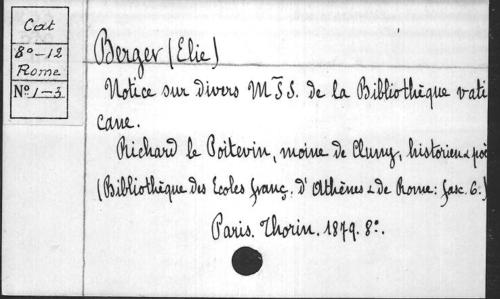 Cat
8°-12
Rome
N° 1-3
Berger (Elie)
Notice sur divers MSS. de la Bibliothèque vati
cane.
Richard le Poitevin, moine de Cluny, historien & poè
(Bibliothèque des Ecoles franç. d'Athènes & de Rome: fasc. 6.)
Paris. Thorin. 1879. 8°.